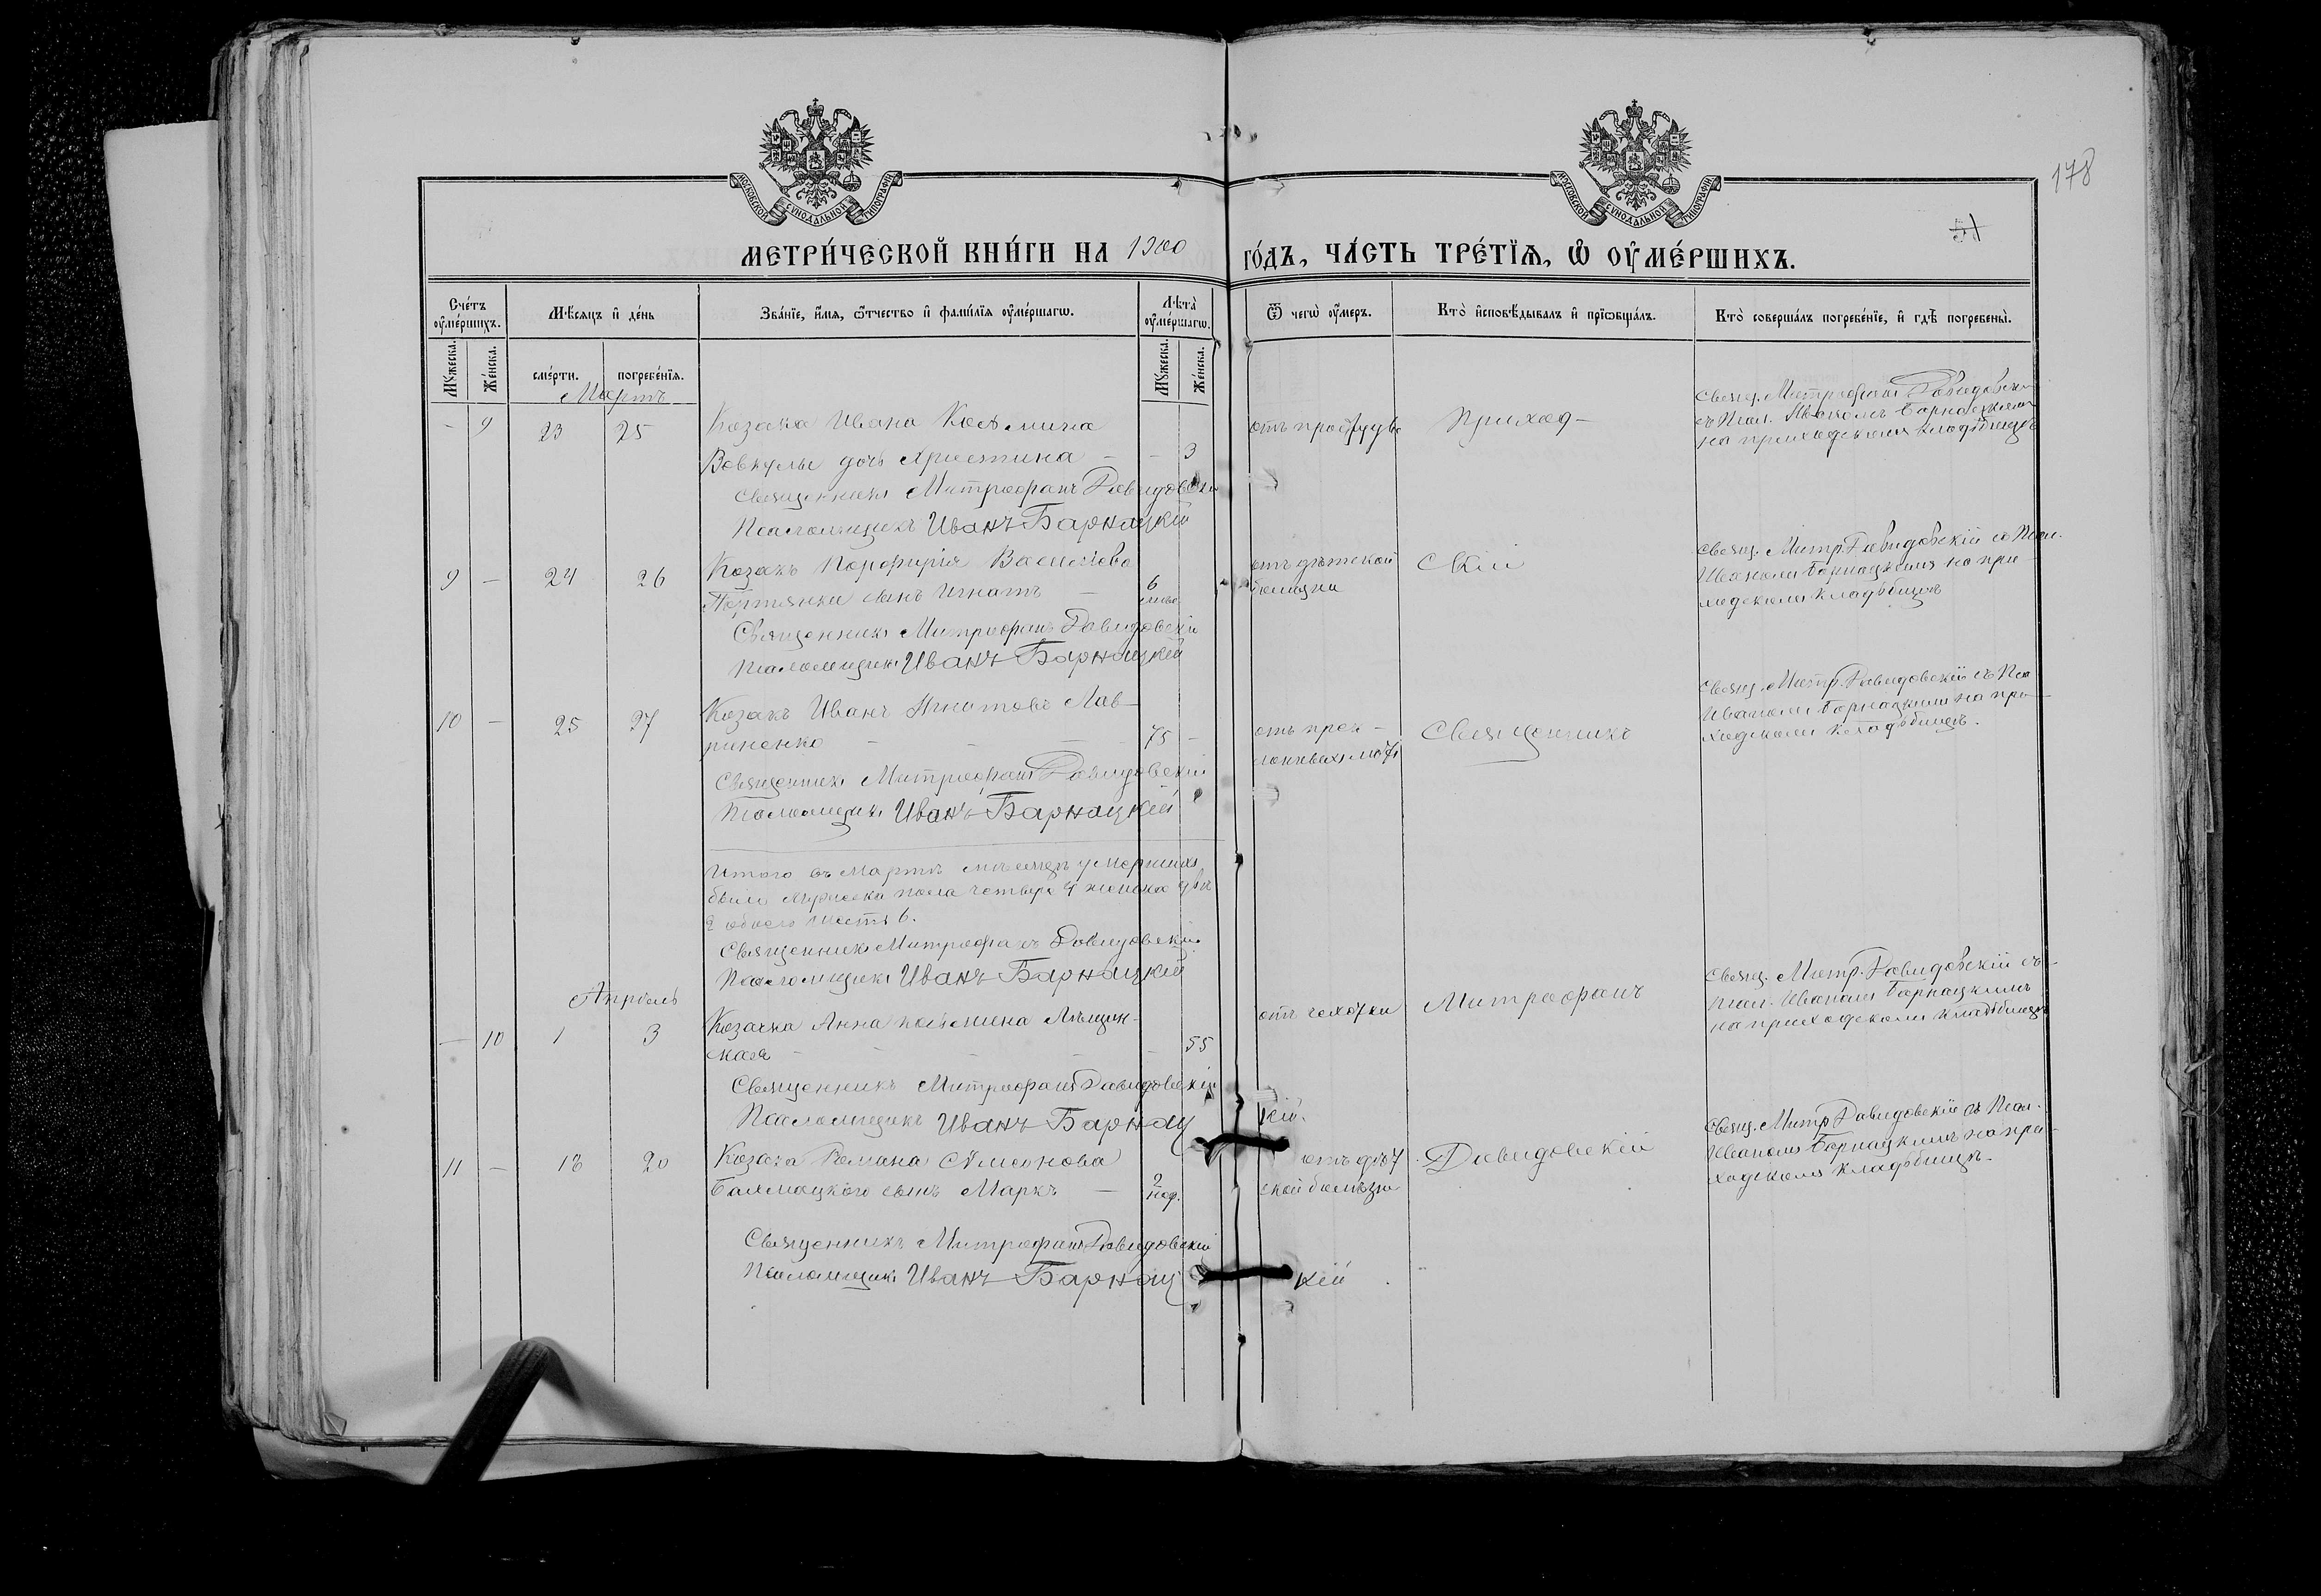 МОСКОВСКОЙ СѴНОДАЛЬНОЙ ТИПОГРАФІИ
МОСКОВСКОЙ СѴНОДАЛЬНОЙ ТИПОГРАФІИ
178
51
МЕТРИ́ЧЕСКОЙ КНИ́ГИ НА 1900 ГО́ДЪ, ЧА́СТЬ ТРЕ́ТЇѦ, Ѡ҆ ОУ҆МЕ́РШИХЪ.
Сче́тъ оу҆ме́ршихъ.
Мѣ́сяцъ и҆ де́нь
Зва́нїе, и҆́мя, ѻ҆́тчество и҆ фами́лїя оу҆ме́ршагѡ.
Лѣ́та оу҆ме́ршагѡ.
Ѿ чегѡ̀ оу҆́меръ.
Кто̀ и҆сповѣ́дывалъ и҆ прїѡбща́лъ.
Кто̀ соверша́лъ погребе́нїе, и҆ гдѣ̀ погребены̀.
Мꙋ́жеска.
Же́нска.
сме́рти.
погребе́нїя.
Мꙋ́жеска.
Же́нска.
Мартъ
- 9 23 25 Козака Ивана Косьмина
Вовкулы дочь Христина - - 3
Священникъ Митрофанъ Давидовскій
Псаломщикъ Иванъ Барнацкій
отъ простуды
Приход-
Свящ. Митрофанъ Давидовскій
съ Псал. Иваномъ Барнацкимъ
на приходскомъ кладбищѣ
9 - 24 26 Козака Порфирія Васильева
Портянки сынъ Игнатъ - 6
Священникъ Митрофанъ Давидовскій
Псаломщикъ Иванъ Барнацкій
отъ дѣтской
болѣзни
скій
Свящ. Митр. Давидовскій со Псал.
Иваномъ Барнацкимъ на при
ходскомъ кладбищѣ
10 - 25 27 Козакъ Иванъ Игнатовъ Лав-
риненко - - - 75 -
Священникъ Митрофанъ Давидовскій
Псаломщикъ Иванъ Барнацкій
отъ прек-
лонныхъ лѣтъ
Священникъ
Свящ. Митр. Давидовскій съ Пса
Иваномъ Барнацкимъ на при-
ходскомъ кладбищѣ.
Итого въ Мартѣ мѣсяцѣ умершихъ
было мужеска пола четыре 4 женска двѣ
2 обоего шесть 6.
Священникъ Митрофанъ Давидовскій
Псаломщикъ Иванъ Барнацкій
Апрѣль
- 10 1 3 Козачка Анна Косьмина
- - - - - 55
Священникъ Митрофанъ Давидовскій
Псаломщикъ Иванъ Барнацкій.
отъ чахотки
Митрофанъ
Свящ. Митр. Давидовскій съ
Псал. Иваномъ Барнацкимъ
на приходскомъ кладбищѣ
11 - 18 20 Козака Романа Сѵмеонова
Бахмацкого сынъ Маркъ - 2 нед.
Священникъ Митрофанъ Давидовскій
Псаломщикъ Иванъ Барнацкій
отъ дѣт
ской болѣзни
Давидовскій
Свящ. Митр. Давидовскій съ Псал.
Иваномъ Барнацкимъ на при-
ходскомъ кладбищѣ.